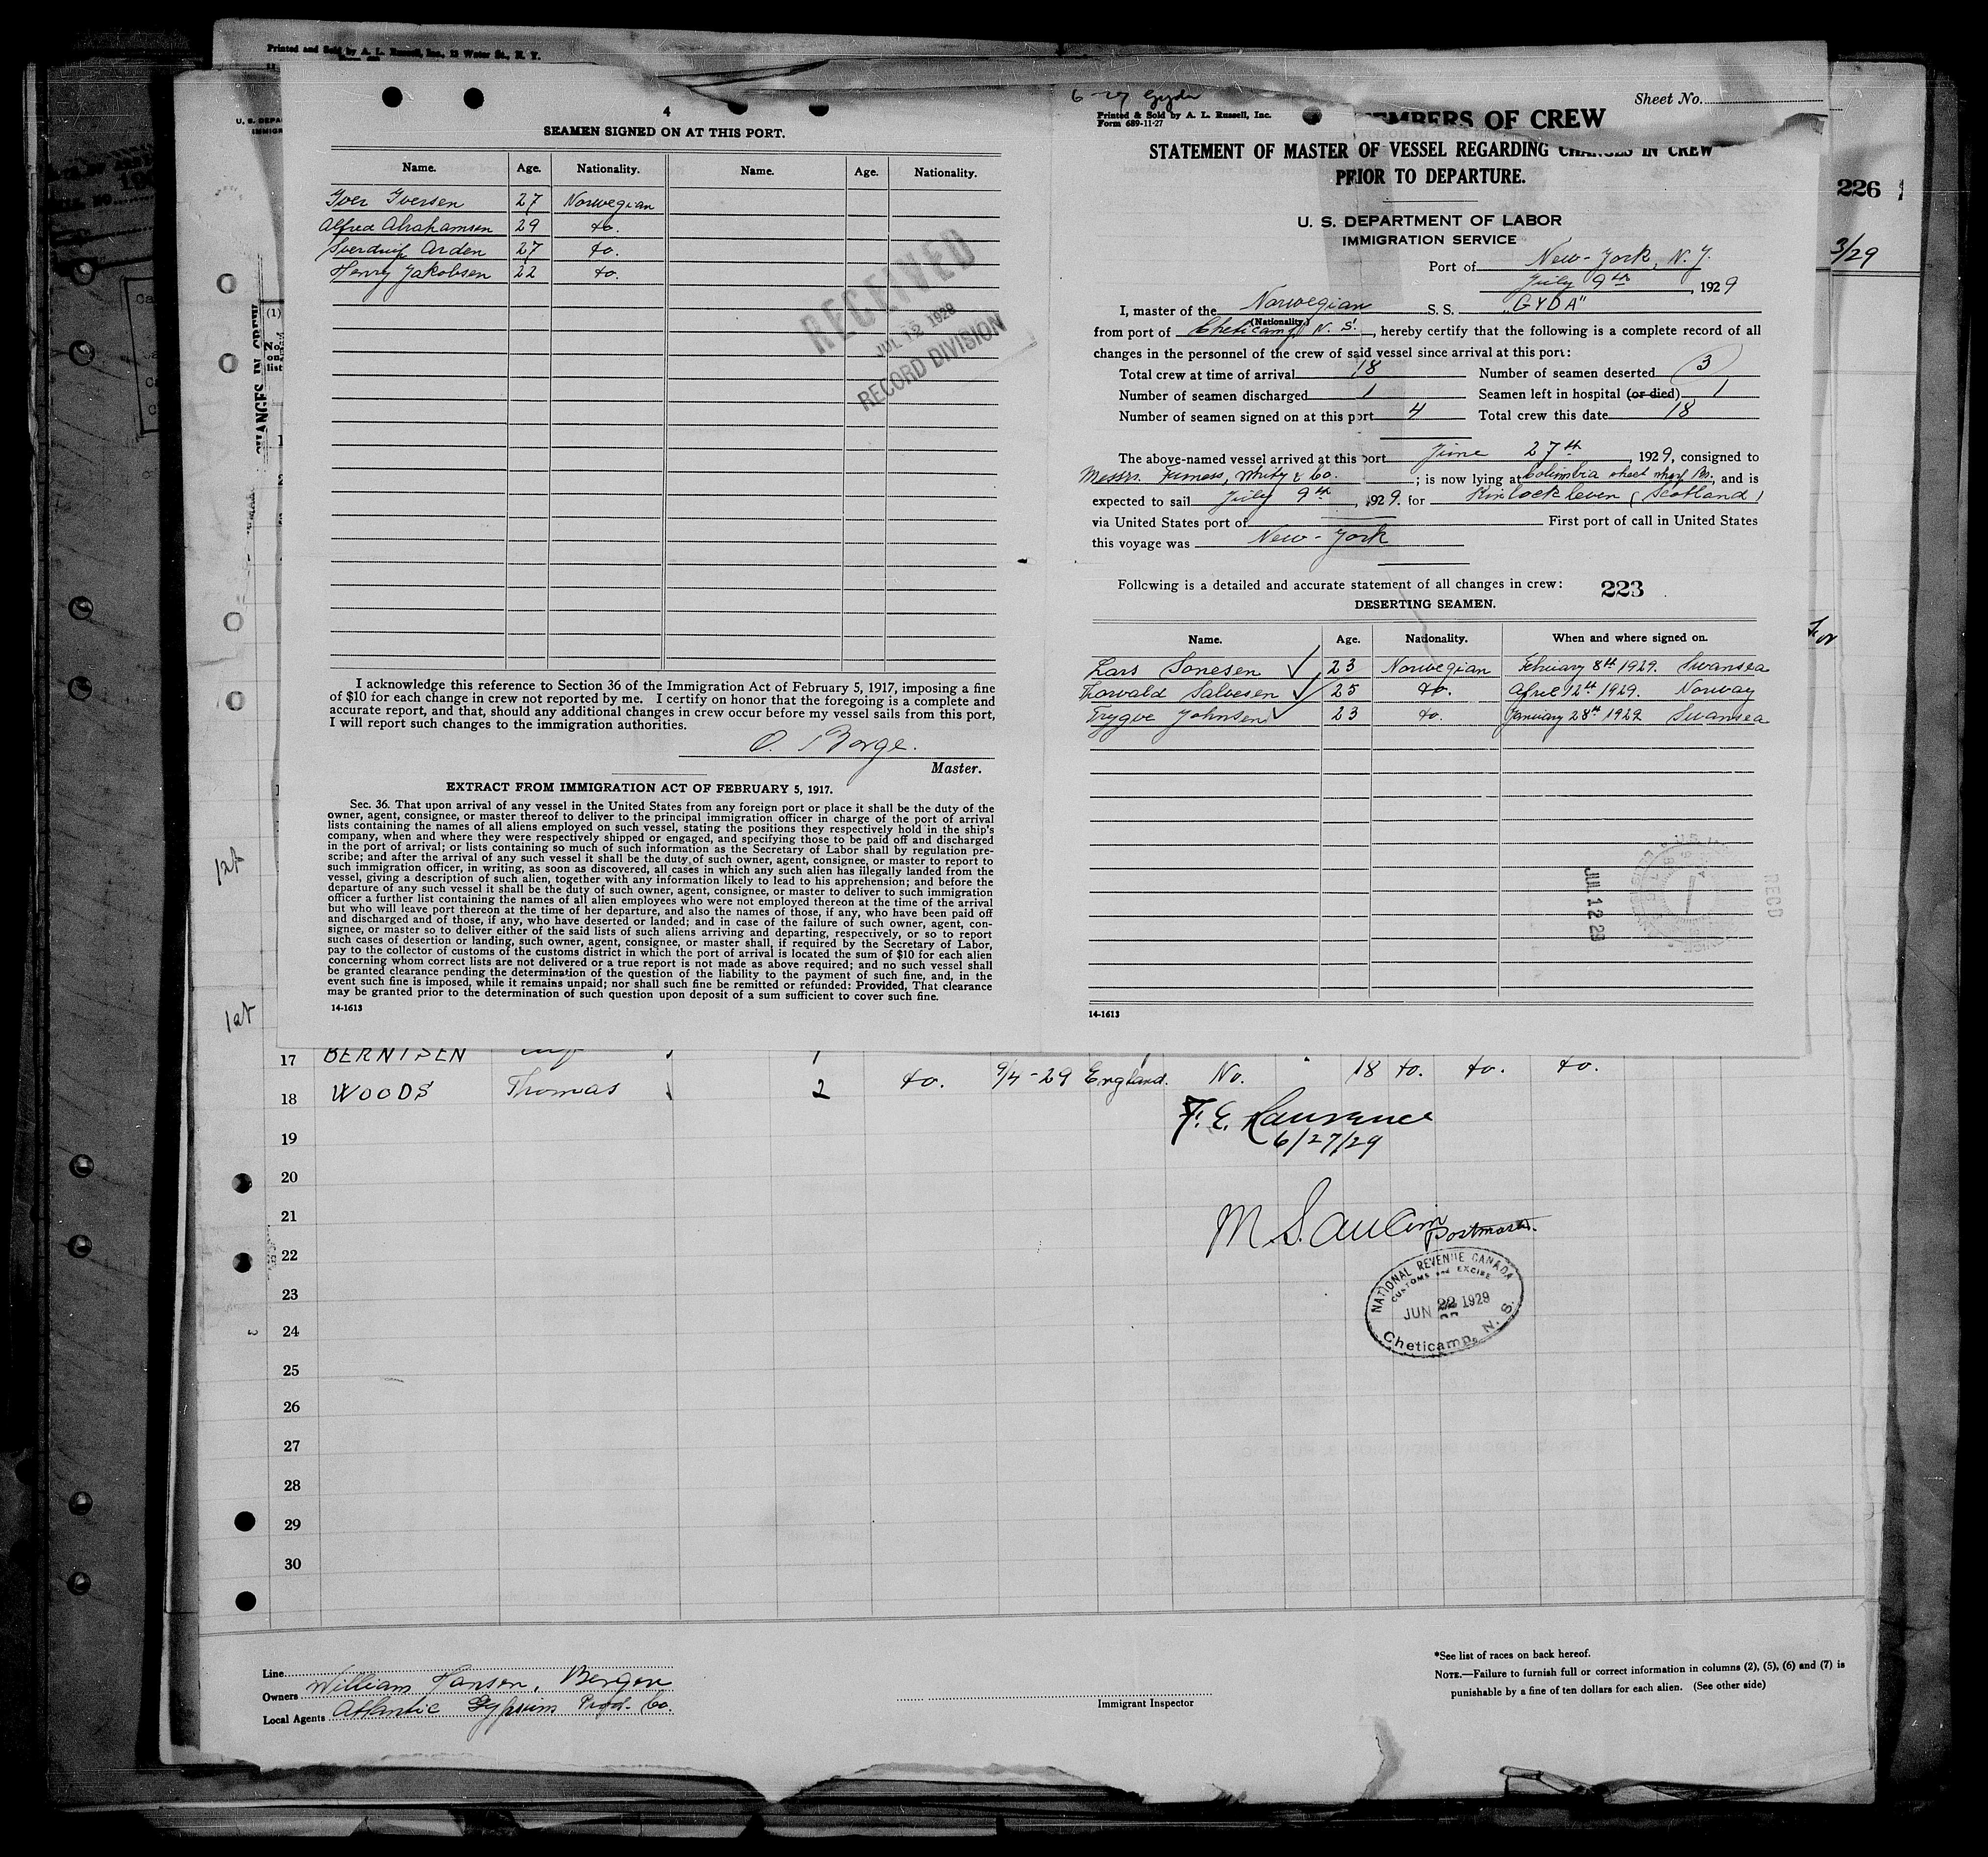 Printed and Sold by A. L. Russell, Inc., 12 Water St., N. Y.
4
SEAMEN SIGNED ON AT THIS PORT.
Name. Age. Nationality. Name. Age. Nationality.
Iver Iversen 27 Norwegian
Alfred Abrahamsen 29 do.
Arden 27 do.
Henry Jakobsen 22 do.
RECEIVED
JUL 12 1929
RECORD DIVISION
I acknowledge this reference to Section 36 of the Immigration Act of February 5, 1917, imposing a fine
of $10 for each change in crew not reported by me. I certify on honor that the foregoing is a complete and
accurate report, and that, should any additional changes in crew occur before my vessel sails from this port,
I will report such changes to the immigration authorities.
O. Borge.
Master.
EXTRACT FROM IMMIGRATION ACT OF FEBRUARY 5, 1917.
Sec. 36. That upon arrival of any vessel in the United States from any foreign port or place it shall be the duty of the
owner, agent, consignee, or master thereof to deliver to the principal immigration officer in charge of the port of arrival
lists containing the names of all aliens employed on such vessel, stating the positions they respectively hold in the ship's
company, when and where they were respectively shipped or engaged, and specifying those to be paid off and discharged
in the port of arrival; or lists containing so much of such information as the Secretary of Labor shall by regulation pre-
scribe; and after the arrival of any such vessel it shall be the duty of such owner, agent, consignee, or master to report to
such immigration officer, in writing, as soon as discovered, all cases in which any such alien has illegally landed from the
vessel, giving a description of such alien, together with any information likely to lead to his apprehension; and before the
departure of any such vessel it shall be the duty of such owner, agent, consignee, or master to deliver to such immigration
officer a further list containing the names of all alien employees who were not employed thereon at the time of the arrival
but who will leave port thereon at the time of her departure, and also the names of those, if any, who have been paid off
and discharged and of those, if any, who have deserted or landed; and in case of the failure of such owner, agent, con-
signee, or master so to deliver either of the said lists of such aliens arriving and departing, respectively, or so to report
such cases of desertion or landing, such owner, agent, consignee, or master shall, if required by the Secretary of Labor,
pay to the collector of customs of the customs district in which the port of arrival is located the sum of $10 for each alien
concerning whom correct lists are not delivered or a true report is not made as above required; and no such vessel shall
be granted clearance pending the determination of the question of the liability to the payment of such fine, and, in the
event such fine is imposed, while it remains unpaid; nor shall such fine be remitted or refunded: Provided, That clearance
may be granted prior to the determination of such question upon deposit of a sum sufficient to cover such fine.
14-1613
6-27 Gyda
Printed & Sold by A. L. Russell, Inc.
Form 689-11-27
Sheet No.
MEMBERS OF CREW
STATEMENT OF MASTER OF VESSEL REGARDING CHANGES IN CREW
PRIOR TO DEPARTURE.
U. S. DEPARTMENT OF LABOR
IMMIGRATION SERVICE
Port of New-York, N.Y.
July 9th, 1929
I, master of the Norwegian S. S. "GYDA"
(Nationality.)
from port of Cheticamp N. S., hereby certify that the following is a complete record of all
changes in the personnel of the crew of said vessel since arrival at this port:
Total crew at time of arrival 18 Number of seamen deserted 3
Number of seamen discharged 1 Seamen left in hospital (or died) 1
Number of seamen signed on at this port 4 Total crew this date 18
The above-named vessel arrived at this port June 27th, 1929, consigned to
Messrs. Furness, Whity & Co.; is now lying at Columbia street wharf, and is
expected to sail July 9th, 1929. for Kinlockleven (Scotland)
via United States port of First port of call in United States
this voyage was New-York
Following is a detailed and accurate statement of all changes in crew: 223
DESERTING SEAMEN.
Name. Age. Nationality. When and where signed on.
Lars Sonesen 23 Norwegian February 8th 1929. Swansea
Torvald Salvesen 25 do. April 12th 1929. Norway
Trygve Johnsen 23 do. January 28th 1929 Swansea
JUL 12 29
RECD
14-1613
226
3/29
CHANGES IN CREW
1st
1st
17 BERNTSEN
18 WOODS Thomas 2 do. 9/4-29 England. No. 18 do. do. do.
F. E. Lawrence
6/27/29
19
20
21
22
23
24
25
26
27
28
29
30
M. S. Aucoin
NATIONAL REVENUE CANADA
CUSTOMS and EXCISE
JUN 22 1929
Cheticamp, N. S.
Line
Owners William Hansen, Bergen
Local Agents Atlantic Gypsum Prod. Co.
Immigrant Inspector
*See list of races on back hereof.
NOTE.—Failure to furnish full or correct information in columns (2), (5), (6) and (7) is
punishable by a fine of ten dollars for each alien. (See other side)